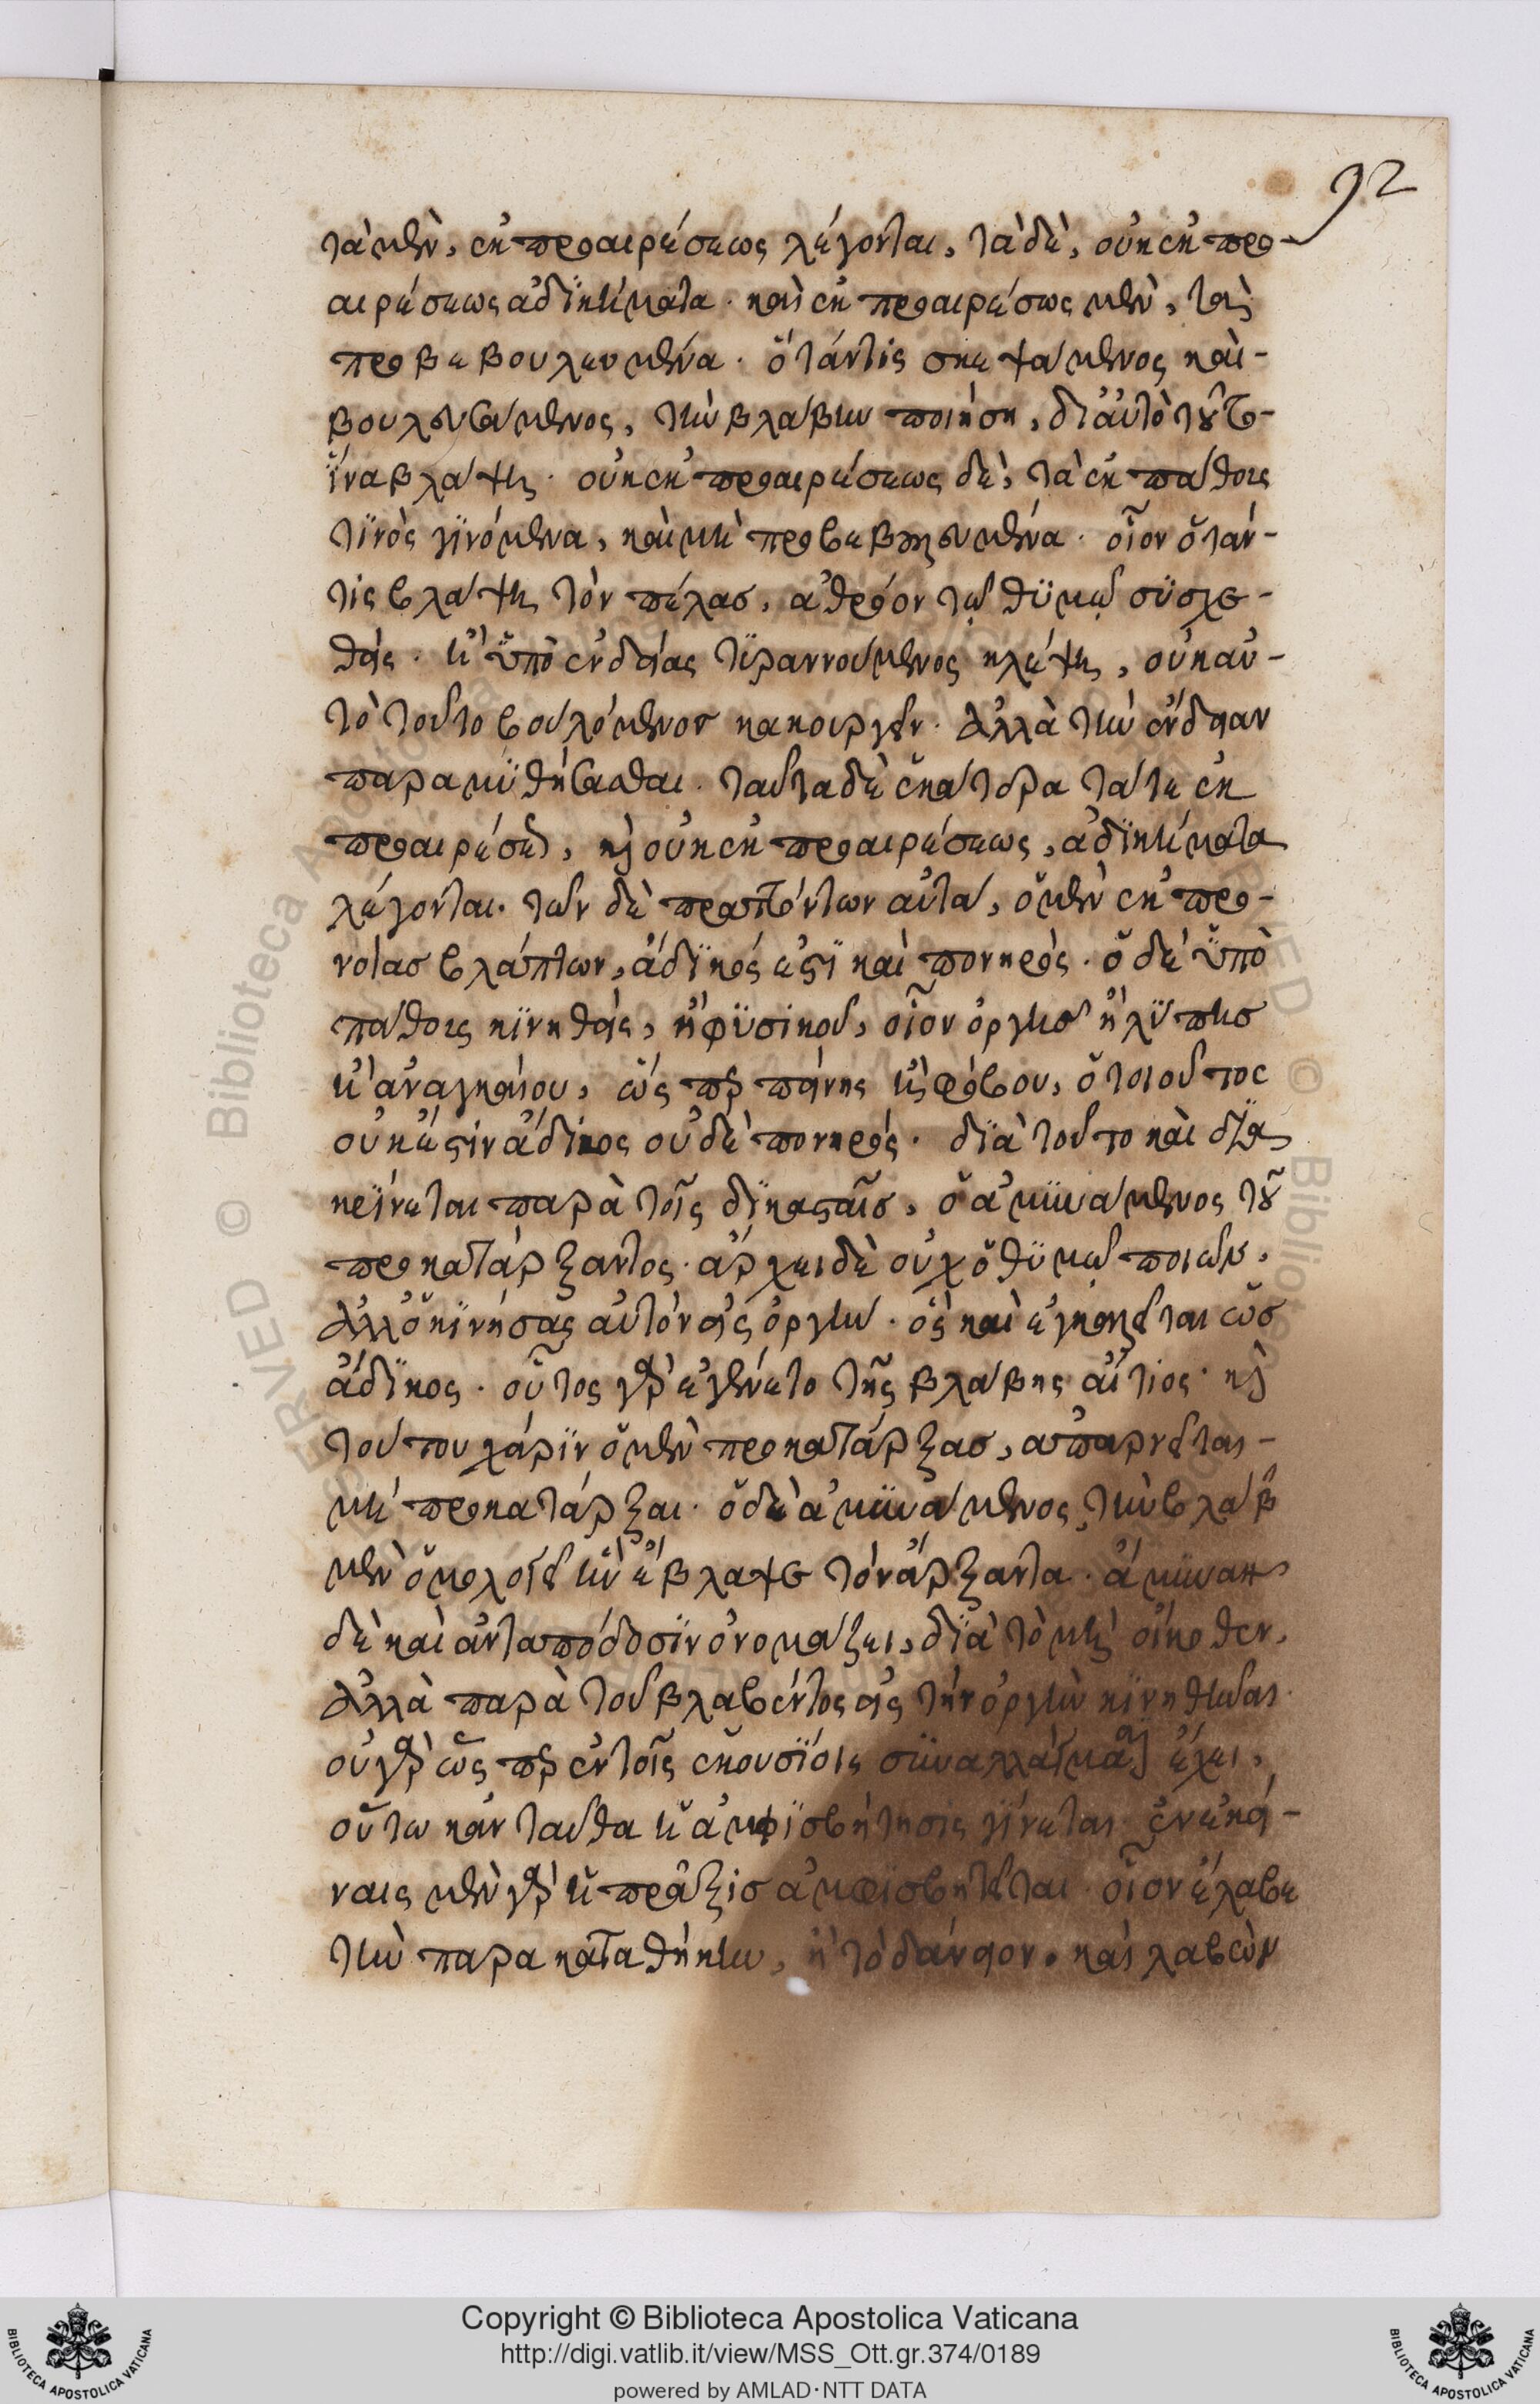 92
τὰ μὲν, ἐκ προαιρέσεως λέγονται, τὰ δὲ, οὐκ ἐκ προ-
αιρέσεως ἀδϊκήματα. καὶ ἐκ προαιρέσως μὲν, τὰ
προβεβουλευμένα. ὅτάν τὶς σκεψάμενος καὶ-
βουλευσάμενος, τὴν βλάβην ποιήση, δι αὐτὸ τοῦτο-
ἵνα βλάψη. οὐκ ἐκ προαιρέσεως δὲ, τὰ ἐκ πάθους
τϊνὸς γϊνόμενα, καὶ μὴ προβεβουλευμένα. οἷον ὅτάν-
τὶς βλάψη τὸν πέλας, ἀθρόον τῷ θϋμῷ σϋσχε-
θείς. ἢ ὑπὸ ἐνδείας τϋραννούμενος κλέψη, οὐκ αὐ-
τὸ τοῦτο βουλόμενος κακουργεῖν. ἀλλὰ τὴν ἔνδειαν
παραμϋθήσασθαι. ταῦτα δὲ ἑκάτερα τά τε ἐκ
προαιρέσεως, καὶ οὐκ ἐκ προαιρέσεως, ἀδϊκήματα
λέγονται. τῶν δὲ πραττόντων αὐτὰ, ὁ μὲν ἐκ προ-
νοίας βλάπτων, ἄδϊκός ἐστϊ καὶ πονηρός. ὁ δὲ ὑπὸ
πάθους κϊνηθείς, ἢ φϋσικοῦ, οἷον ὀργῆς ἢ λϋπης
ἢ ἀναγκαίου, ὥς περ πείνης ἢ φόβου, ὁ τοιοῦτος
οὐκ ἔστιν ἄδικος οὐδὲ πονηρός. δϊὰ τοῦτο καὶ δϊα
κρίνεται παρὰ τοῖς δϊκασταῖς, ὁ ἀμϋνάμενος τοῦ
προκατάρξαντος. ἄρχει δὲ οὐχ ὁ θϋμῷ ποιῶν,
ἀλλ ὁ κϊνήσας αὐτὸν εἰς ὀργήν. ὃς καὶ ἐγκαλεῖται ὡς
ἄδϊκος. οὗτος γὰρ ἐγένετο τῆς βλάβης αἴτιος. καὶ
τούτου χάρϊν ὁ μὲν προκατάρξας, ἀπαρνεῖται-
μὴ προκατάρξαι. ὁ δὲ ἀμϋνάμενος, τὴν βλάβην
μὲν ὁμολογεῖ ἣν ἔβλαψε τὸν ἄρξαντα. ἄμϋναν
δὲ καὶ ἀνταπόδοσϊν ὀνομάζει, δϊὰ τὸ μὴ οἴκοθεν,
ἀλλὰ παρὰ τοῦ βλαβέντος εἰς τὴν ὀργὴν κϊνηθῆναι.
οὐ γὰρ ὥς περ ἐν τοῖς ἑκουσϊοις σϋναλλάγμασι ἔχει,
οὕτω κἀνταῦθα ἡ ἀμφϊσβήτησις γίνεται ἐν ἐκεί-
ναις μὲν γὰρ ἡ πρᾶξις ἀμφισβητεῖται. οἷον ἔλαβε
τὴν παρακαταθήκην, ἢ τὸ δάνειον. καὶ λαβὼν
Copyright © Biblioteca Apostolica Vaticana
http://digi.vatlib.it/view/MSS_Ott.gr.374/0189
powered by AMLAD·NTT DATA